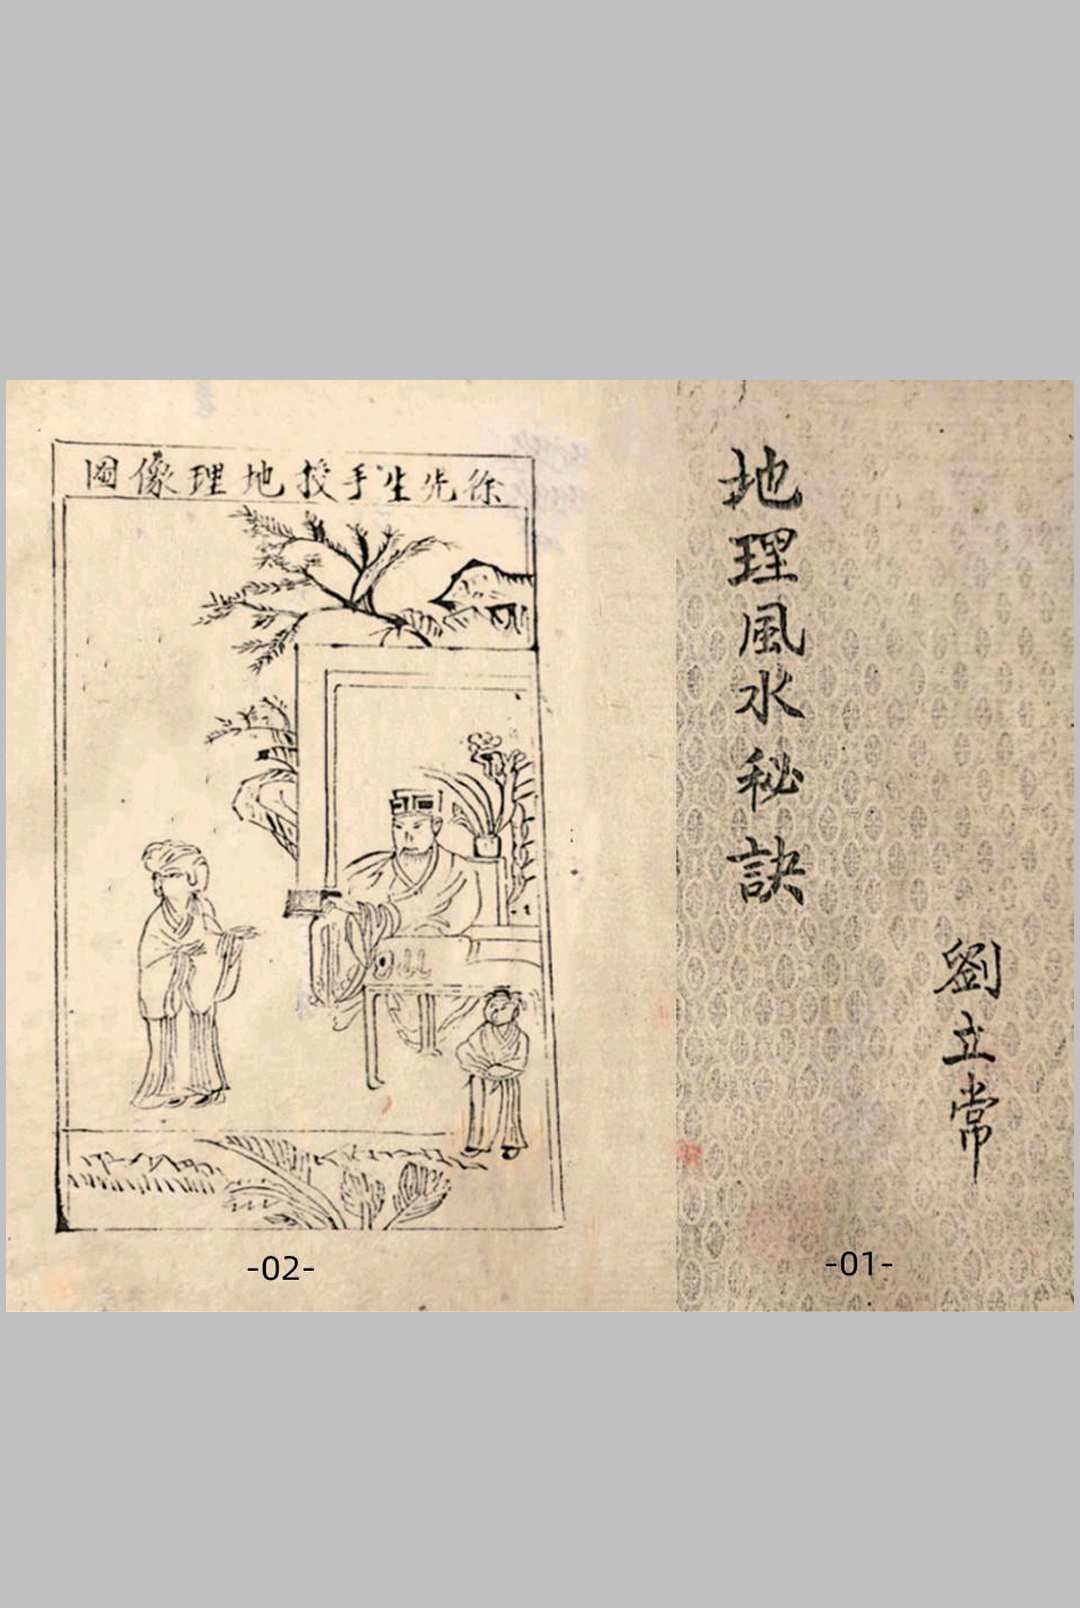 地理風水秘訣
劉立常
-01-
徐先生手授地理像圖
-02-